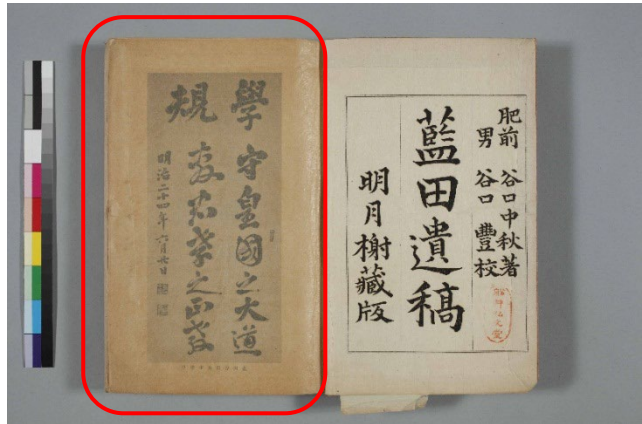 肥前 谷口中秋著
男 谷口 豐校
藍田遺稿
明月榭藏版
學規
守皇國之大道
孝之正教
明治二十四年六月